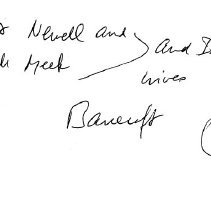 Newell and
Meek
and
wives
Bancroft